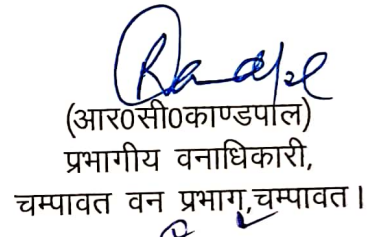 (आर0सी0काण्डपाल)
प्रभागीय वनाधिकारी,
चम्पावत वन प्रभाग,चम्पावत।